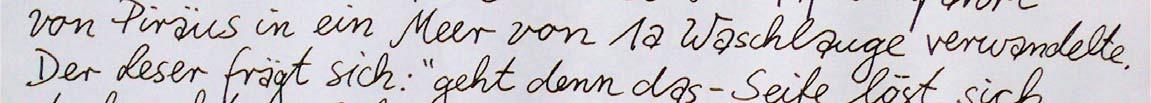 von Piräus in ein Meer von 1a Waschlauge verwandelte.
Der Leser frägt sich: "geht denn das - Seife löst sich